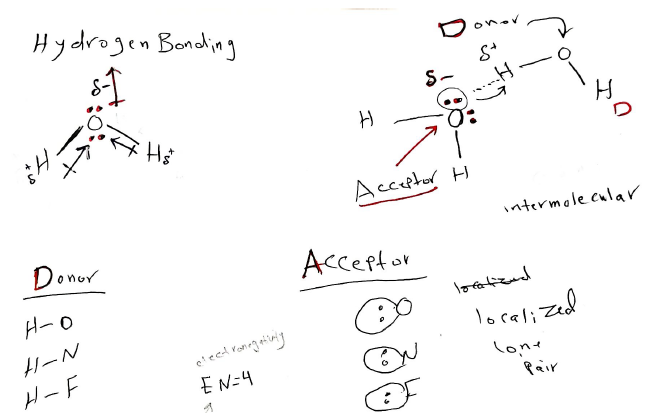 Hydrogen Bonding
δ-
O
δ+ H
H δ+
Donor
δ+
H
O
H
D
δ-
H
O
H
Acceptor
intermolecular
Donor
H-O
H-N
H-F
electronegativity
EN=4
Acceptor
O
N
F
localized
localized
lone
pair